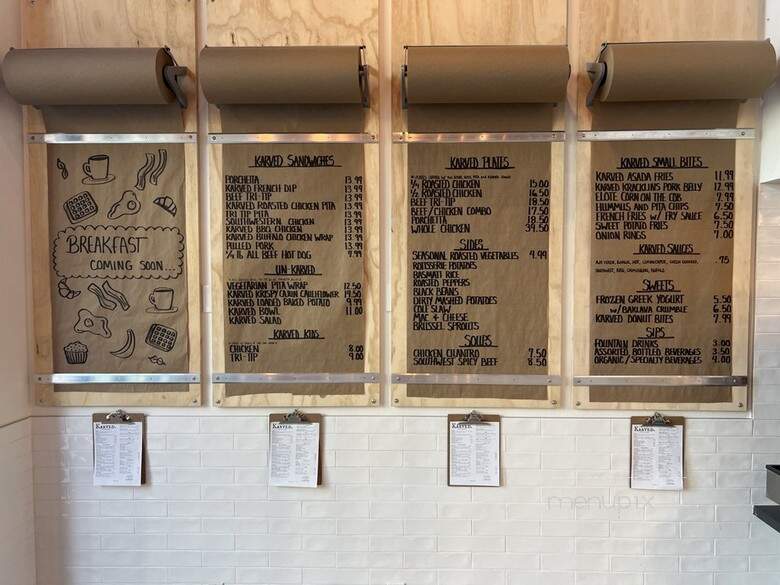 BREAKFAST
COMING SOON...
KARVED SANDWICHES
PORCHETTA 13.99
KARVED FRENCH DIP 13.99
BEEF TRI-TIP 13.99
KARVED ROASTED CHICKEN PITA 13.99
TRI TIP PITA 13.99
SOUTHWESTERN CHICKEN 13.99
KARVED BBQ CHICKEN 13.99
KARVED BUFFALO CHICKEN WRAP 13.99
PULLED PORK 13.99
1/4 lb ALL BEEF HOT DOG 9.99
UN-KARVED
VEGETARIAN PITA WRAP 12.50
KARVED KRISPY CAJUN CAULIFLOWER 14.50
KARVED LOADED BAKED POTATO 9.99
KARVED BOWL 11.00
KARVED SALAD
KARVED KIDS
CHICKEN 8.00
TRI-TIP 9.00
KARVED PLATES
1/4 ROASTED CHICKEN 15.00
1/2 ROASTED CHICKEN 16.50
BEEF TRI-TIP 18.50
BEEF/CHICKEN COMBO 17.50
PORCHETTA 18.50
WHOLE CHICKEN 39.50
SIDES
SEASONAL ROASTED VEGETABLES 4.99
ROTISSERIE POTATOES
BASMATI RICE
ROASTED PEPPERS
BLACK BEANS
DIRTY MASHED POTATOES
COLE SLAW
MAC & CHEESE
BRUSSEL SPROUTS
SOUPS
CHICKEN CILANTRO 7.50
SOUTHWEST SPICY BEEF 8.50
KARVED SMALL BITES
KARVED ASADA FRIES 11.99
KARVED KRACKLINS PORK BELLY 12.99
ELOTE CORN ON THE COB 7.99
HUMMUS AND PITA CHIPS 7.50
FRENCH FRIES W/ FRY SAUCE 6.50
SWEET POTATO FRIES 7.50
ONION RINGS 7.00
KARVED SAUCES
.75
SWEETS
FROZEN GREEK YOGURT 5.50
W/BAKLAVA CRUMBLE 6.50
KARVED DONUT BITES 7.99
SIPS
FOUNTAIN DRINKS 3.00
ASSORTED BOTTLED BEVERAGES 3.50
ORGANIC/SPECIALTY BEVERAGES 4.00
KARVED.
KARVED.
KARVED.
KARVED.
menupix